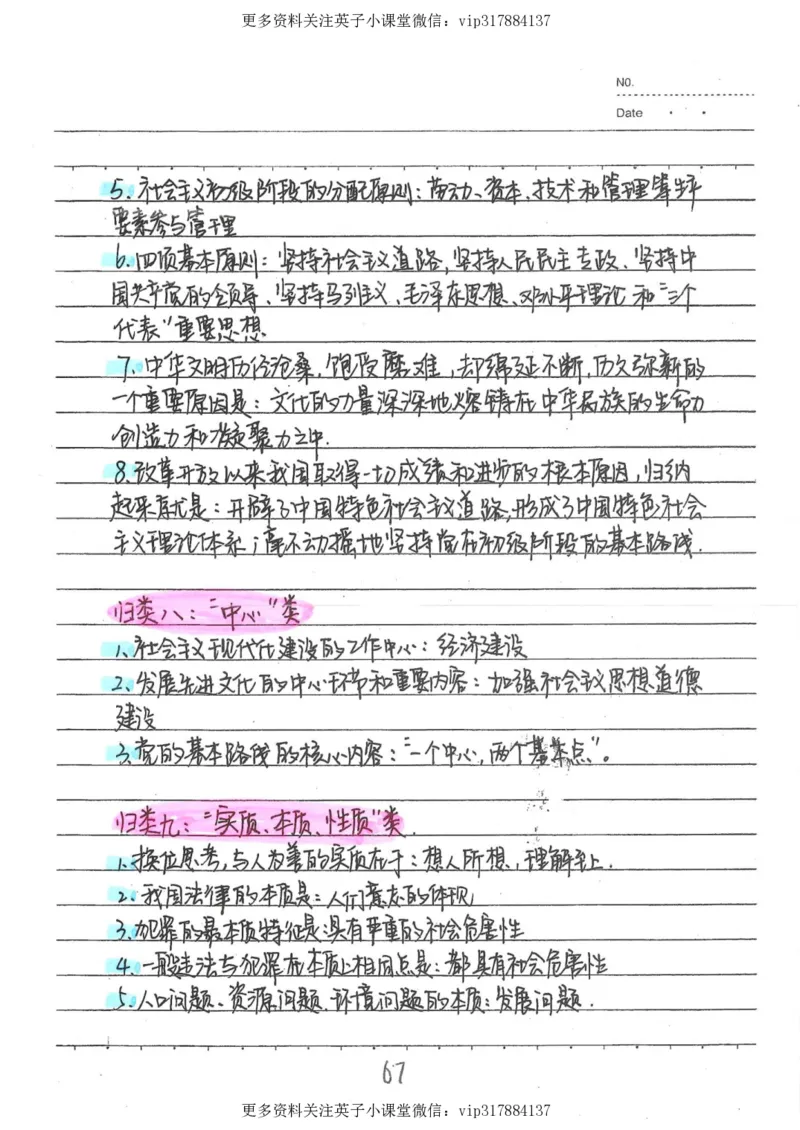 更多资料关注英子小课堂微信：vip317884137
NO.
Date
5.社会主义初级阶段的分配原则：劳动、资本、技术和管理等生产
要素参与管理
6.四项基本原则：坚持社会主义道路，坚持人民民主专政、坚持中
国共产党的领导、坚持马列主义、毛泽东思想、邓小平理论和“三个
代表”重要思想
7.中华文明历经沧桑，饱受磨难，却绵延不断，历久弥新的
一个重要原因是：文化的力量深深地熔铸在中华民族的生命力
创造力和凝聚力之中.
8.改革开放以来我国取得一切成绩和进步的根本原因，归纳
起来就是：开辟了中国特色社会主义道路，形成了中国特色社会
主义理论体系；毫不动摇地坚持党在初级阶段的基本路线.
归类八：“中心”类
1、社会主义现代化建设的工作中心：经济建设
2、发展先进文化的中心环节和重要内容：加强社会主义思想道德
建设
3、党的基本路线的核心内容：“一个中心，两个基本点”。
归类九：“实质、本质、性质”类.
1、换位思考，与人为善的实质在于：想人所想，理解至上.
2、我国法律的本质是：人们意志的体现
3、犯罪的最本质特征是：具有严重的社会危害性
4、一般违法与犯罪在本质上相同点是：都具有社会危害性
5、人口问题、资源问题、环境问题的本质：发展问题.
67
更多资料关注英子小课堂微信：vip317884137